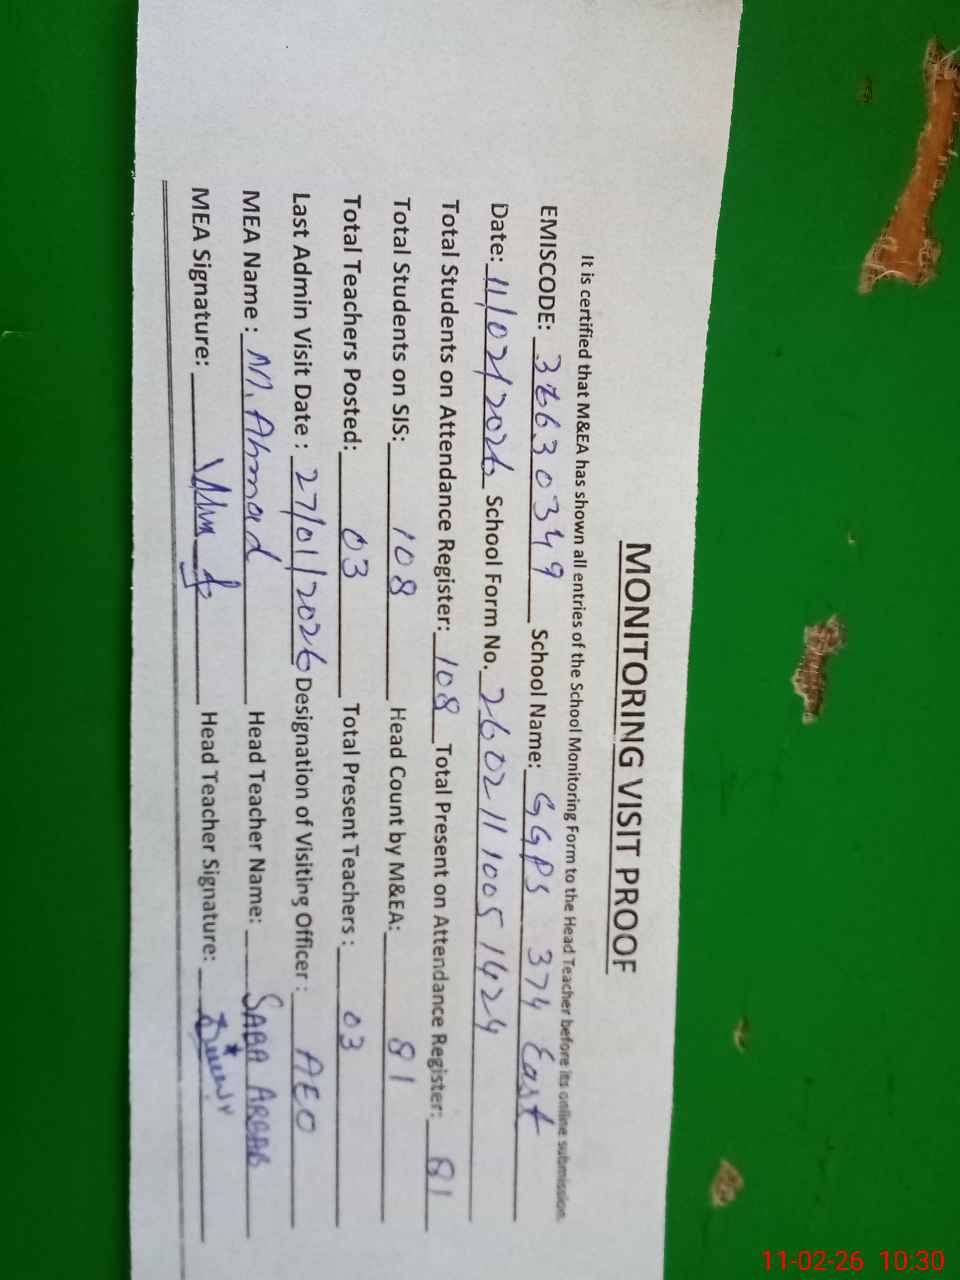 MONITORING VISIT PROOF
It is certified that M&EA has shown all entries of the School Monitoring Form to the Head Teacher before its online submission.
EMISCODE: 36630349 School Name: GGPS 374 East
Date: 11/02/2026 School Form No. 260211 1005 1424
Total Students on Attendance Register: 108 Total Present on Attendance Register: 81
Total Students on SIS: 108 Head Count by M&EA: 81
Total Teachers Posted: 03 Total Present Teachers : 03
Last Admin Visit Date : 27/01/2026 Designation of Visiting Officer : AEO
MEA Name : M. Ahmad Head Teacher Name: SABA ARBAB
MEA Signature: Head Teacher Signature:
11-02-26 10:30